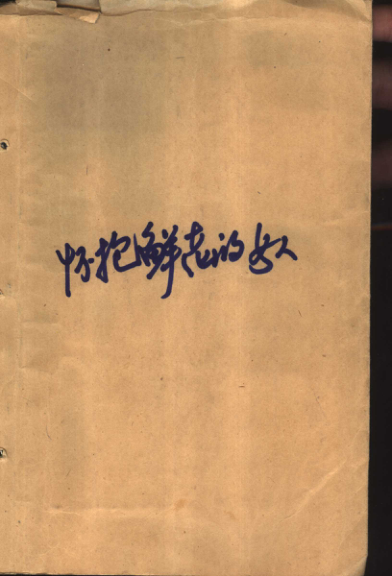 怀抱鲜花的女人